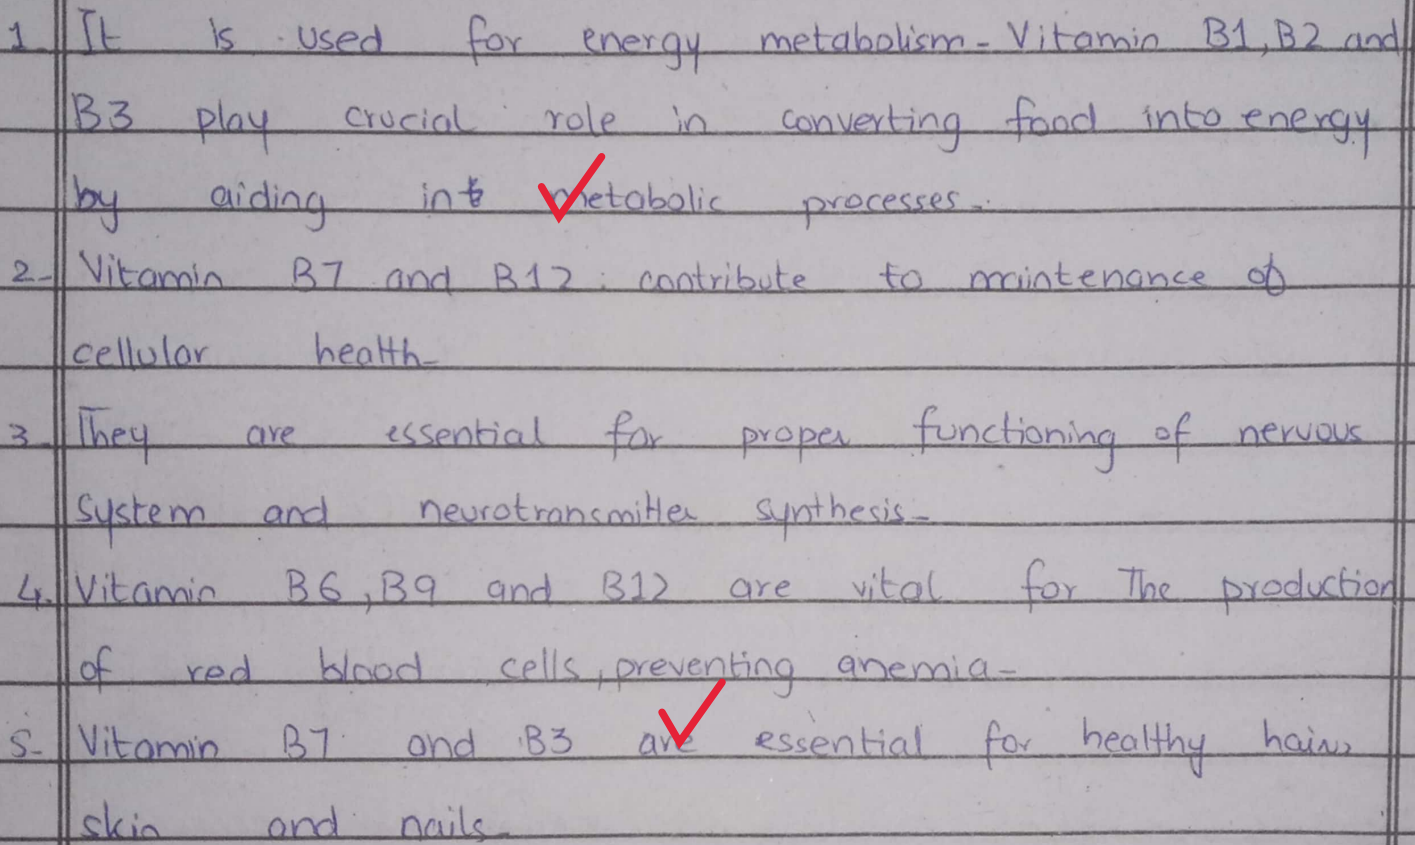 1. It is used for energy metabolism. Vitamin B1, B2 and
B3 play crucial role in converting food into energy
by aiding in metabolic processes.
2. Vitamin B7 and B12 contribute to maintenance of
cellular health.
3. They are essential for proper functioning of nervous
system and neurotransmitter synthesis.
4. Vitamin B6, B9 and B12 are vital for The production
of red blood cells, preventing anemia.
5. Vitamin B7 and B3 are essential for healthy hair,
skin and nails.